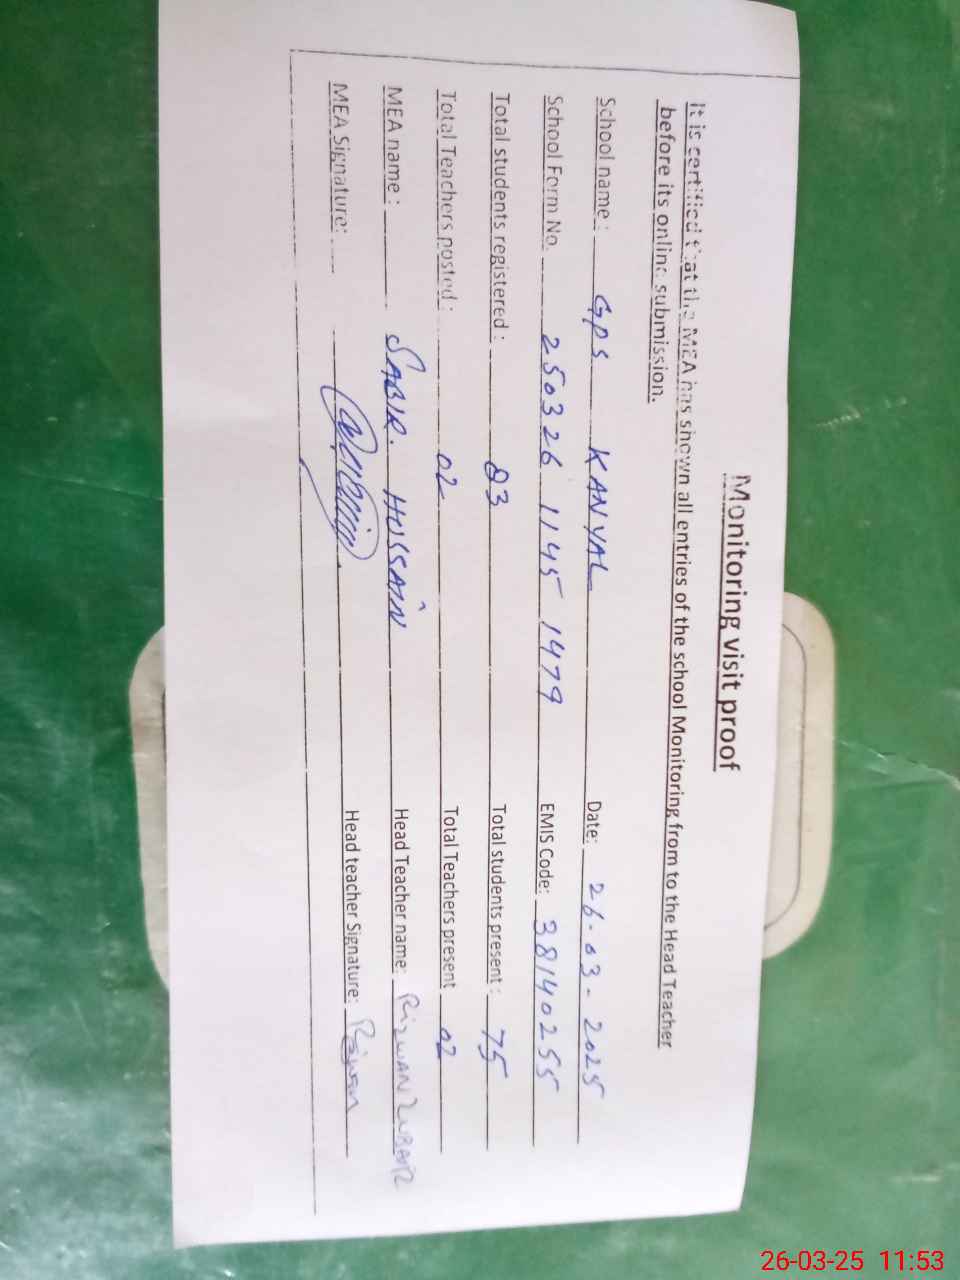 Monitoring visit proof
It is certified that the MEA has shown all entries of the school Monitoring from to the Head Teacher
before its online submission.
School name: GPS KANYAL Date: 26-03-2025
School Form No. 250326 1145 1479 EMIS Code: 38140255
Total students registered: 83 Total students present: 75
Total Teachers posted: 02 Total Teachers present 02
MEA name: SABIR. HUSSAIN Head Teacher name: RizwAN ZUBAIR
MEA Signature: Head teacher Signature: Rizwan
26-03-25 11:53